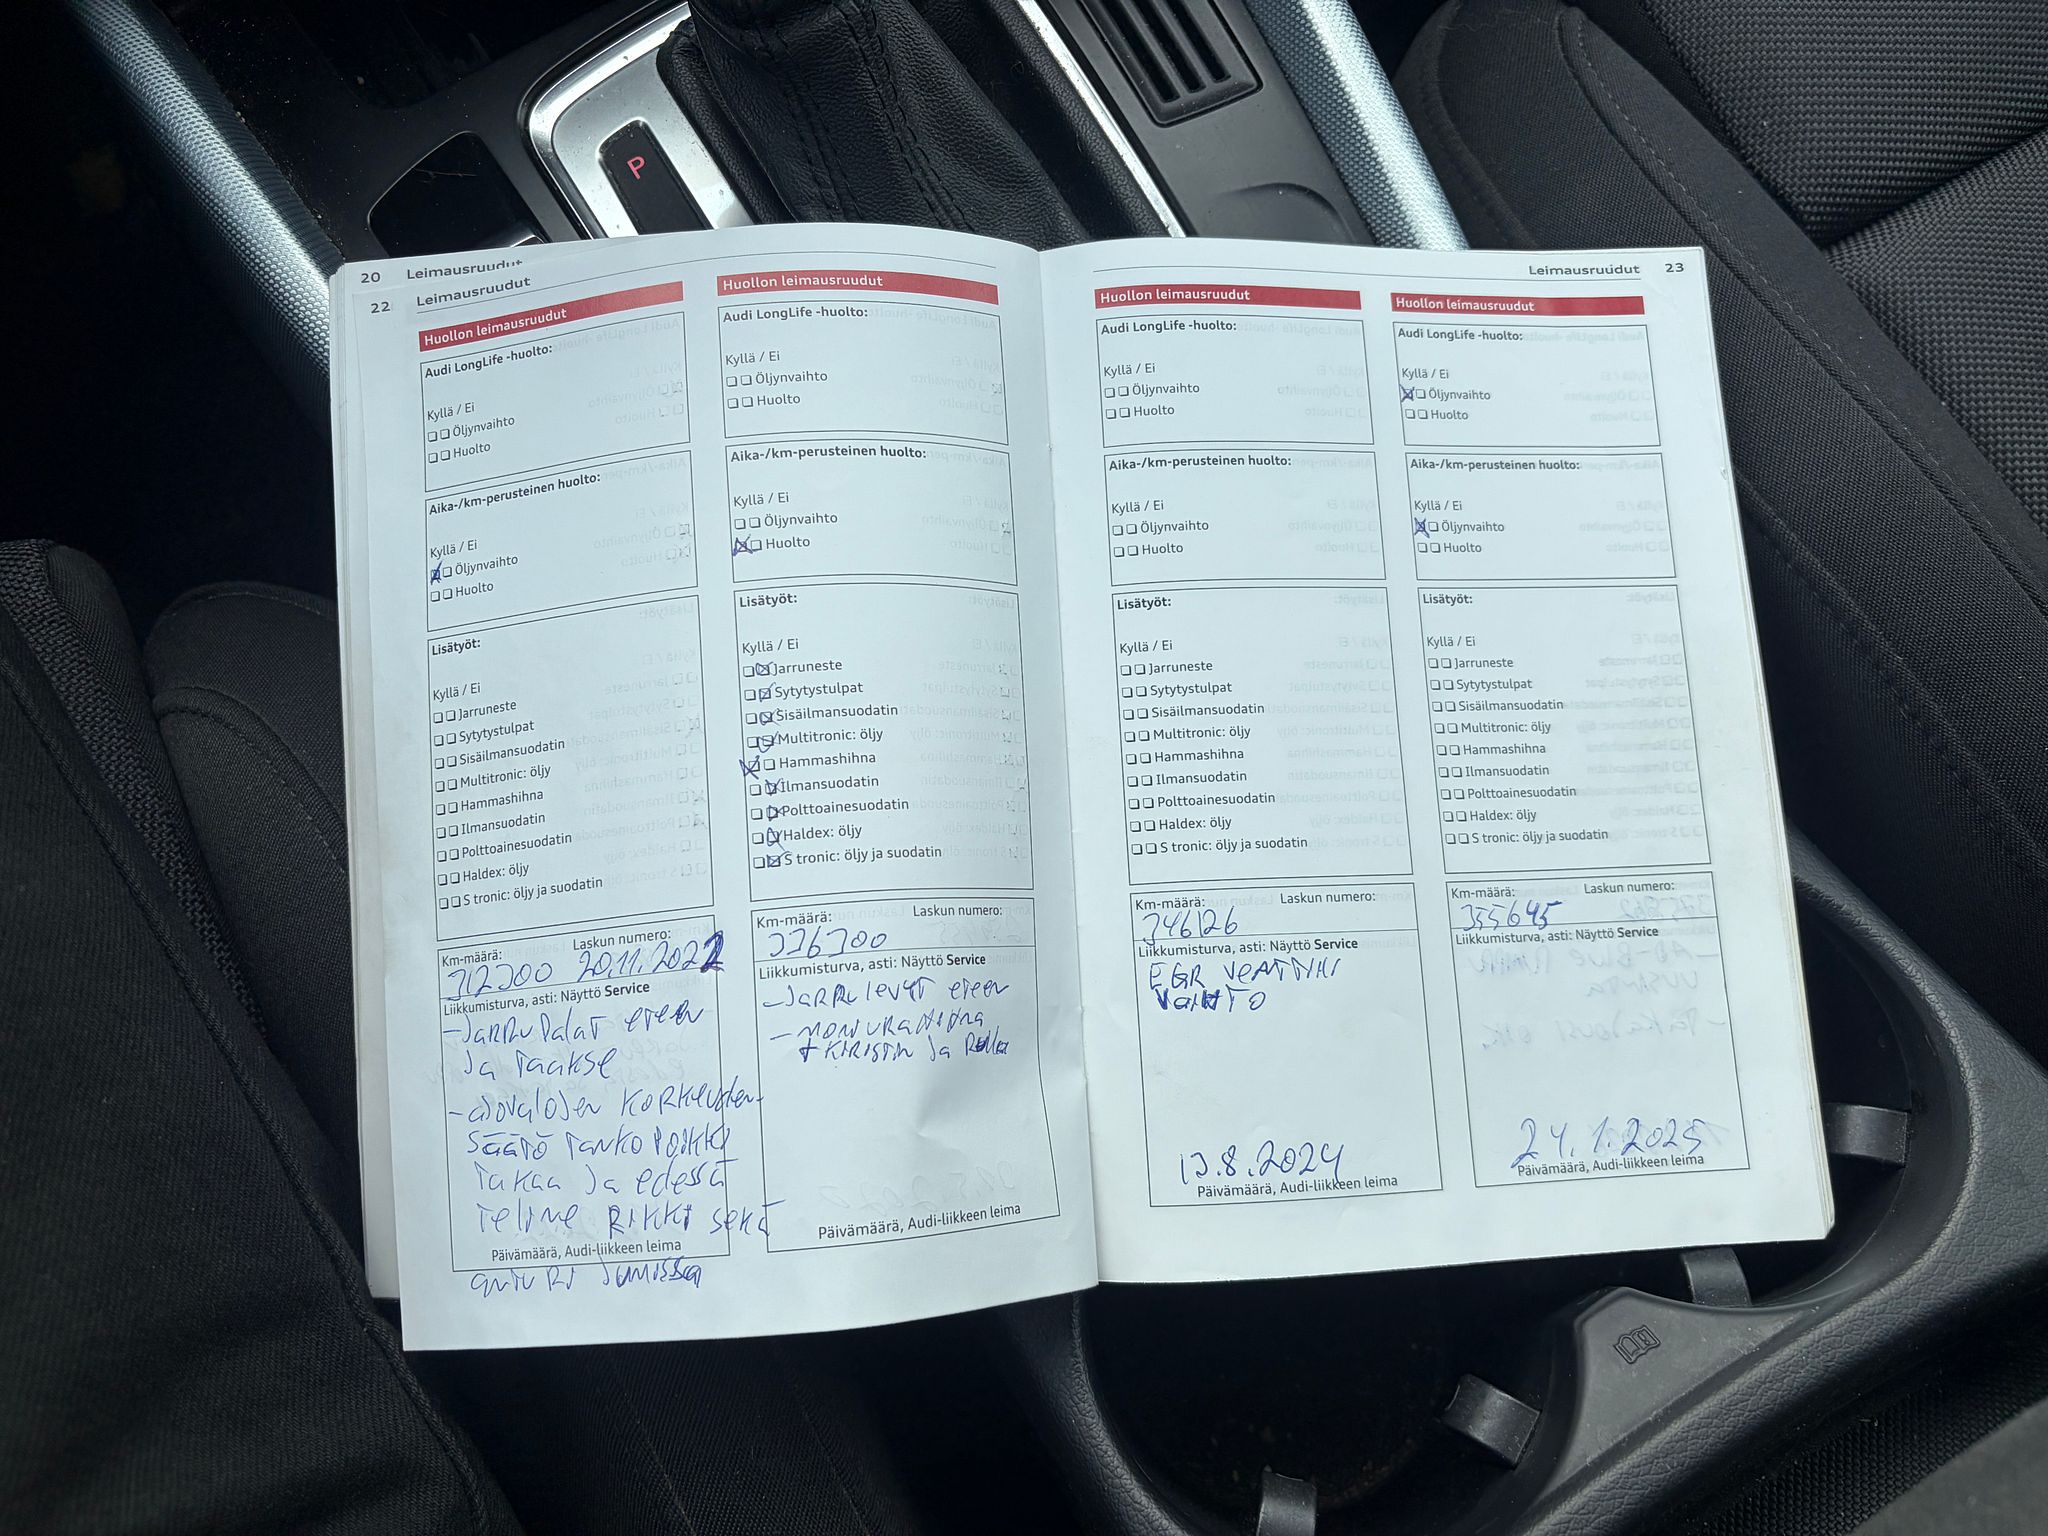 P
20 Leimausruudut
22 Leimausruudut
Huollon leimausruudut
Audi LongLife -huolto:
Kyllä / Ei
Öljynvaihto
Huolto
Aika-/km-perusteinen huolto:
Kyllä / Ei
Öljynvaihto
Huolto
Lisätyöt:
Kyllä / Ei
Jarruneste
Sytytystulpat
Sisäilmansuodatin
Multitronic: öljy
Hammashihna
Ilmansuodatin
Polttoainesuodatin
Haldex: öljy
S tronic: öljy ja suodatin
Km-määrä: Laskun numero:
312300 20.11.2022
Liikkumisturva, asti: Näyttö Service
- Jarrupalat eteen
ja taakse
- ajovalojen korkeuden-
säätö tanko poikki
takaa ja edessä
teline rikki sekä
Päivämäärä, Audi-liikkeen leima
anturi jumissa
Huollon leimausruudut
Audi LongLife -huolto:
Kyllä / Ei
Öljynvaihto
Huolto
Aika-/km-perusteinen huolto:
Kyllä / Ei
Öljynvaihto
Huolto
Lisätyöt:
Kyllä / Ei
Jarruneste
Sytytystulpat
Sisäilmansuodatin
Multitronic: öljy
Hammashihna
Ilmansuodatin
Polttoainesuodatin
Haldex: öljy
S tronic: öljy ja suodatin
Km-määrä: Laskun numero:
336300
Liikkumisturva, asti: Näyttö Service
- Jarrulevyt eteen
- moniurahihna
+ kiristin ja rulla
Päivämäärä, Audi-liikkeen leima
Leimausruudut 23
Huollon leimausruudut
Audi LongLife -huolto:
Kyllä / Ei
Öljynvaihto
Huolto
Aika-/km-perusteinen huolto:
Kyllä / Ei
Öljynvaihto
Huolto
Lisätyöt:
Kyllä / Ei
Jarruneste
Sytytystulpat
Sisäilmansuodatin
Multitronic: öljy
Hammashihna
Ilmansuodatin
Polttoainesuodatin
Haldex: öljy
S tronic: öljy ja suodatin
Km-määrä: Laskun numero:
346126
Liikkumisturva, asti: Näyttö Service
EGR venttiili
vaihto
13.8.2024
Päivämäärä, Audi-liikkeen leima
Huollon leimausruudut
Audi LongLife -huolto:
Kyllä / Ei
Öljynvaihto
Huolto
Aika-/km-perusteinen huolto:
Kyllä / Ei
Öljynvaihto
Huolto
Lisätyöt:
Kyllä / Ei
Jarruneste
Sytytystulpat
Sisäilmansuodatin
Multitronic: öljy
Hammashihna
Ilmansuodatin
Polttoainesuodatin
Haldex: öljy
S tronic: öljy ja suodatin
Km-määrä: Laskun numero:
355645
Liikkumisturva, asti: Näyttö Service
24.1.2025
Päivämäärä, Audi-liikkeen leima